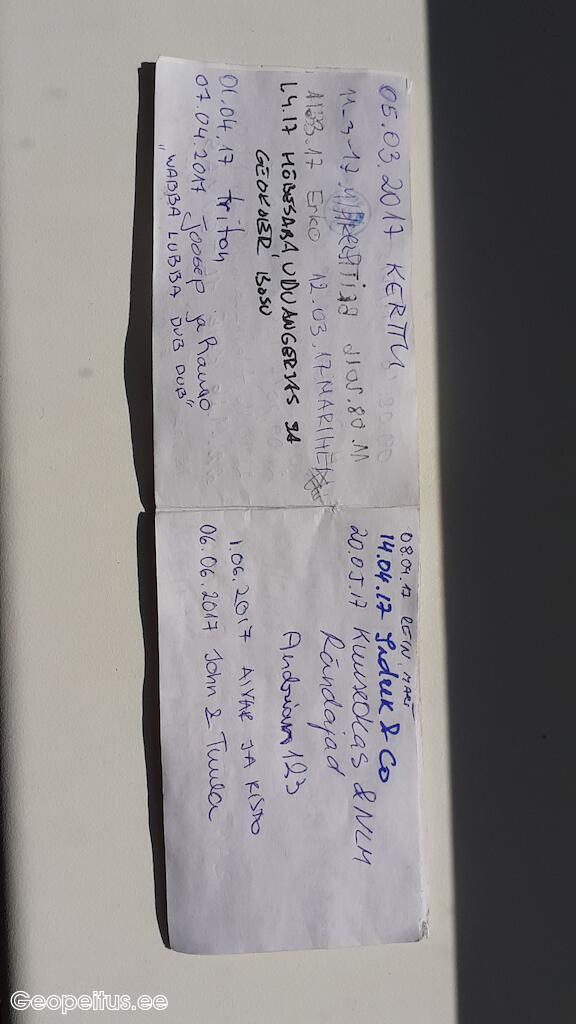 05.03.2017 KERTTU
11-3-17
Erko 12.03.17 MARIHEN
1.4.17 HÕBESABA, UDUANGERJAS JA
GEOKOER BOSU
01.04.17 Triton
07.04.2017 Joosep ja Rauno
"WABBA LUBBA DUB DUB"
08.04.17 REIN, MART
14.04.17 Indrek & Co
20.05.17 Kuusekas & NLM
Rändajad
Andrian123
1.06.2017 AIVAR JA RISTO
06.06.2017 John & Tuula
Geopeitus.ee